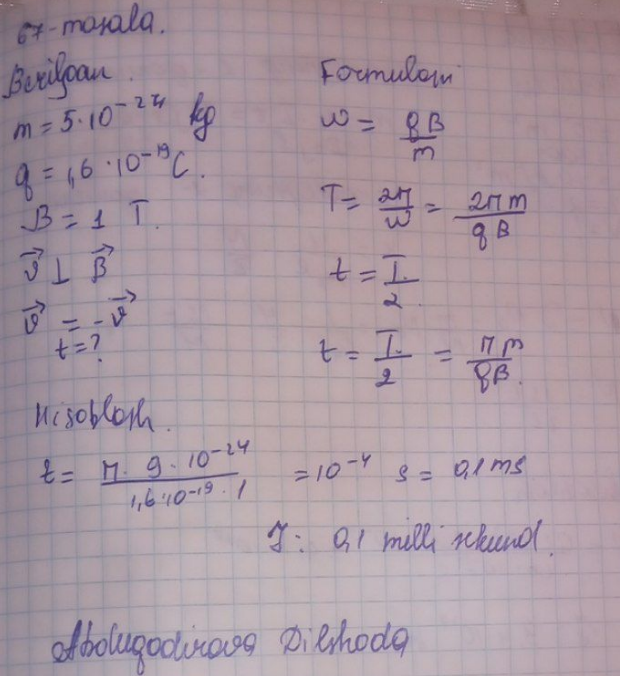 67-masala.
Berilgan.
m = 5·10⁻²⁴ kg
q = 1,6·10⁻¹⁹ C.
B = 1 T.
v⃗ ⊥ B⃗
v⃗ = -v⃗
t = ?
Formulasi
w = qB/m
T = 2π/w = 2πm/qB
t = T/2
t = T/2 = πm/qB.
Hisoblash.
t = π·9·10⁻²⁴/1,6·10⁻¹⁹·1 = 10⁻⁴ s = 0,1 ms
J: 0,1 milli sekund.
Abduqodirova Dilshoda